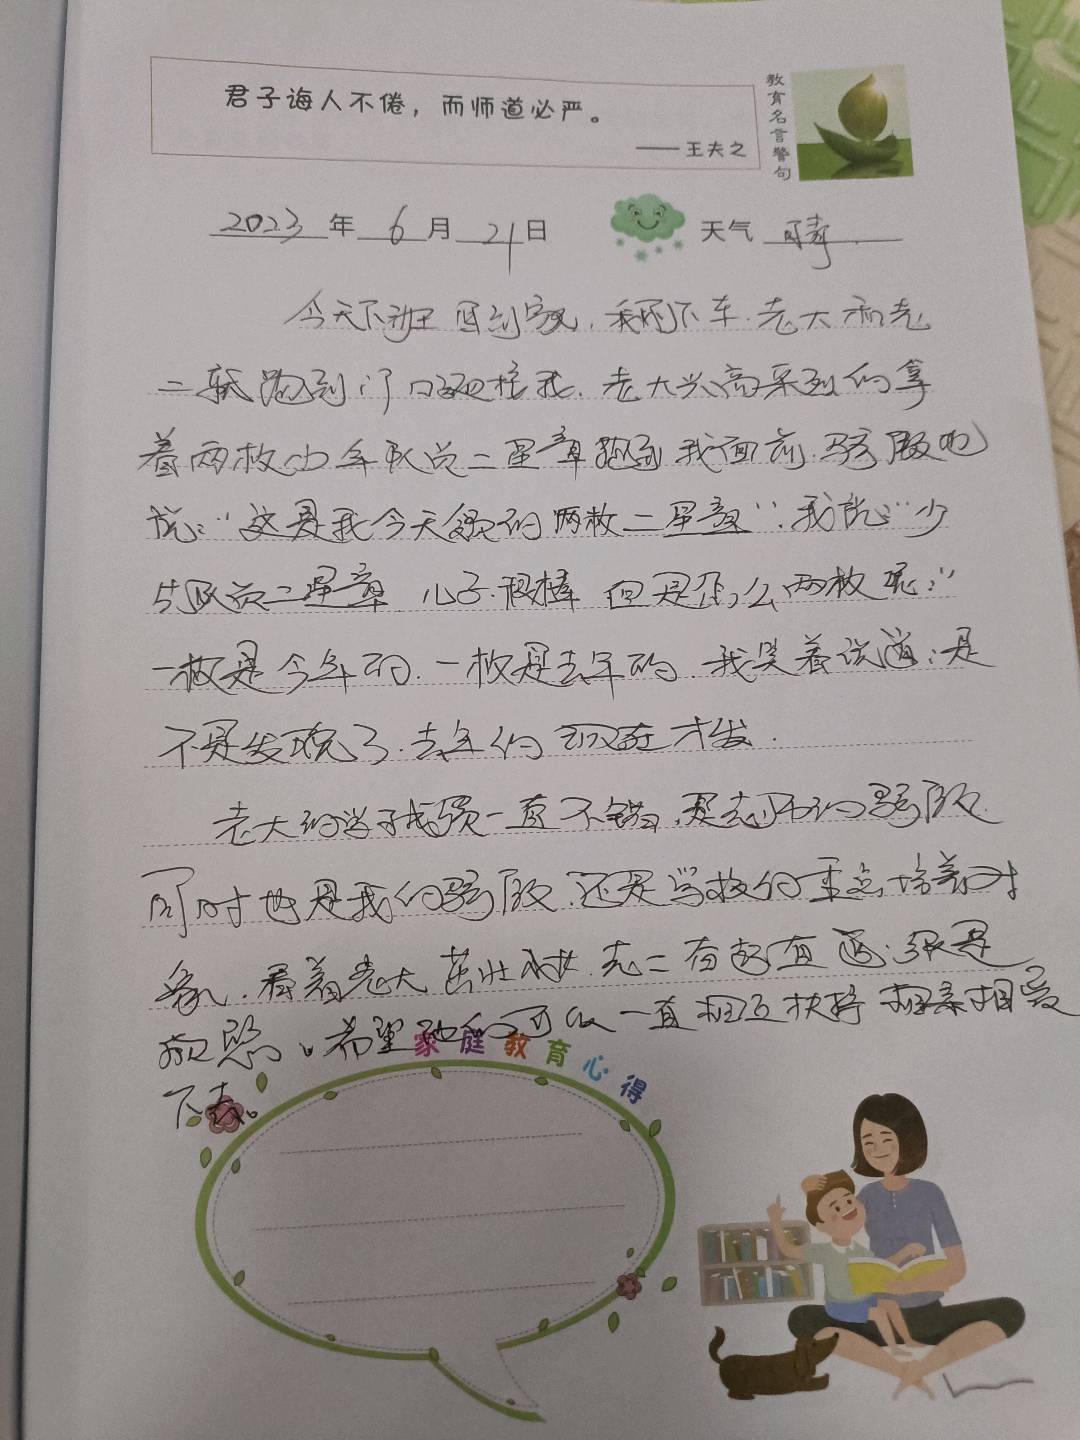 君子诲人不倦，而师道必严。
——王夫之
教育名言警句
2023年6月21日 天气 晴.
今天下班回到家，我刚下车.老大和老
二就跑到门口迎接我.老大兴高采烈的拿
着两枚少年队员二星章跑到我面前.骄傲地
说："这是我今天领的两枚二星章".我说:"少
先队员二星章.儿子.很棒 但是怎么两枚呢:"
一枚是今年的.一枚是去年的.我笑着说道:是
不是发晚了.去年的现在才发.
老大的学习成绩一直不错,是老师的骄傲.
同时也是我的骄傲.还是学校的重点培养对
象.看着老大茁壮成长.老二有
欣慰。希望他们可以一直相互扶持 相亲相爱
下去。
家庭教育心得